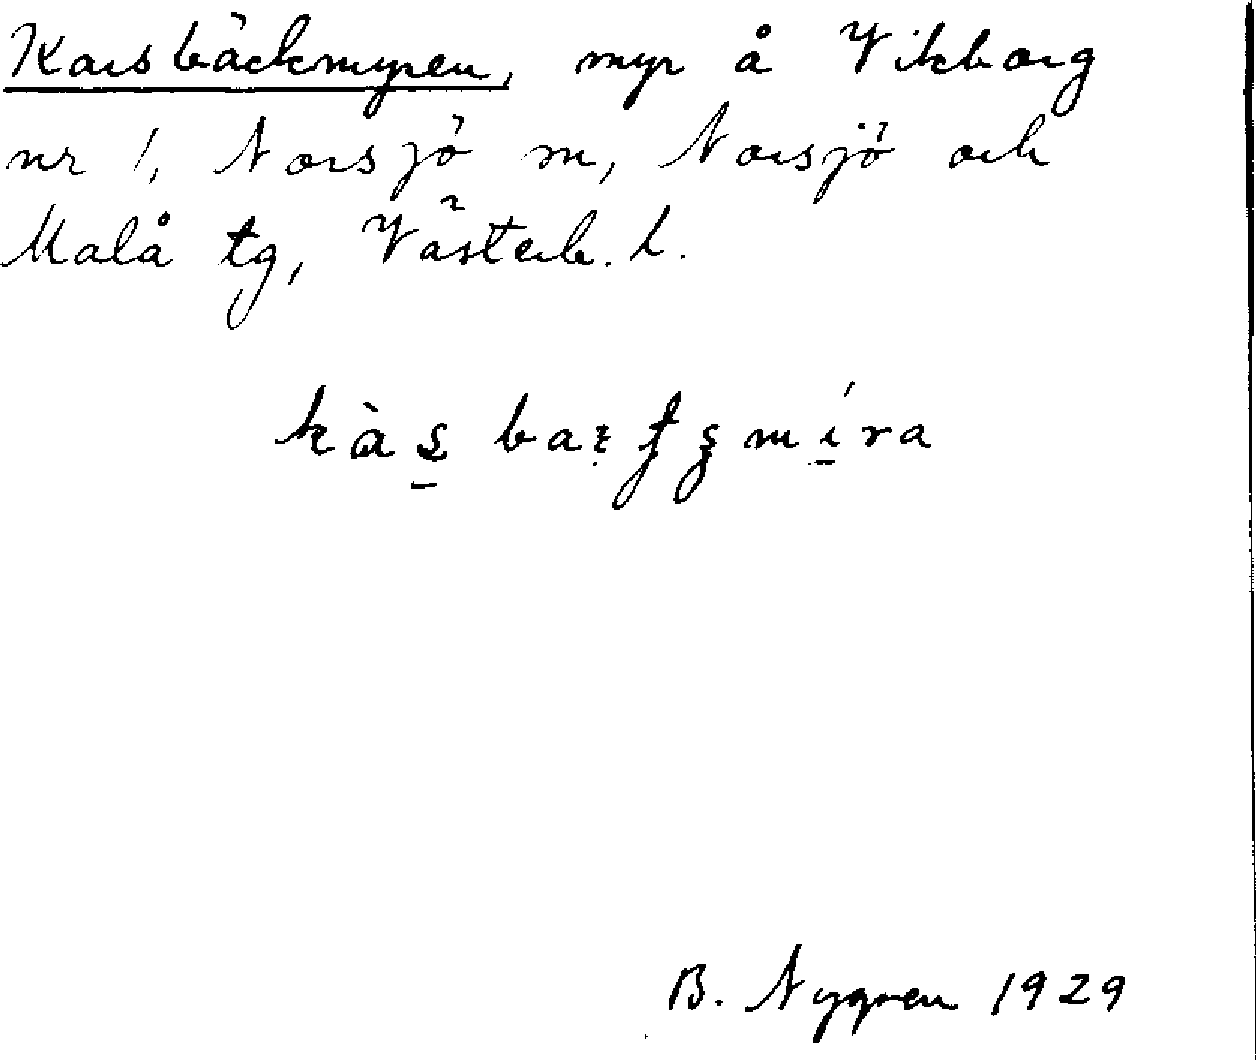 Karsbäckmyren, myr å Vikborg
nr 1, Norsjö sn, Norsjö och
Malå tg, Västerb. l.
B. Nygren 1929